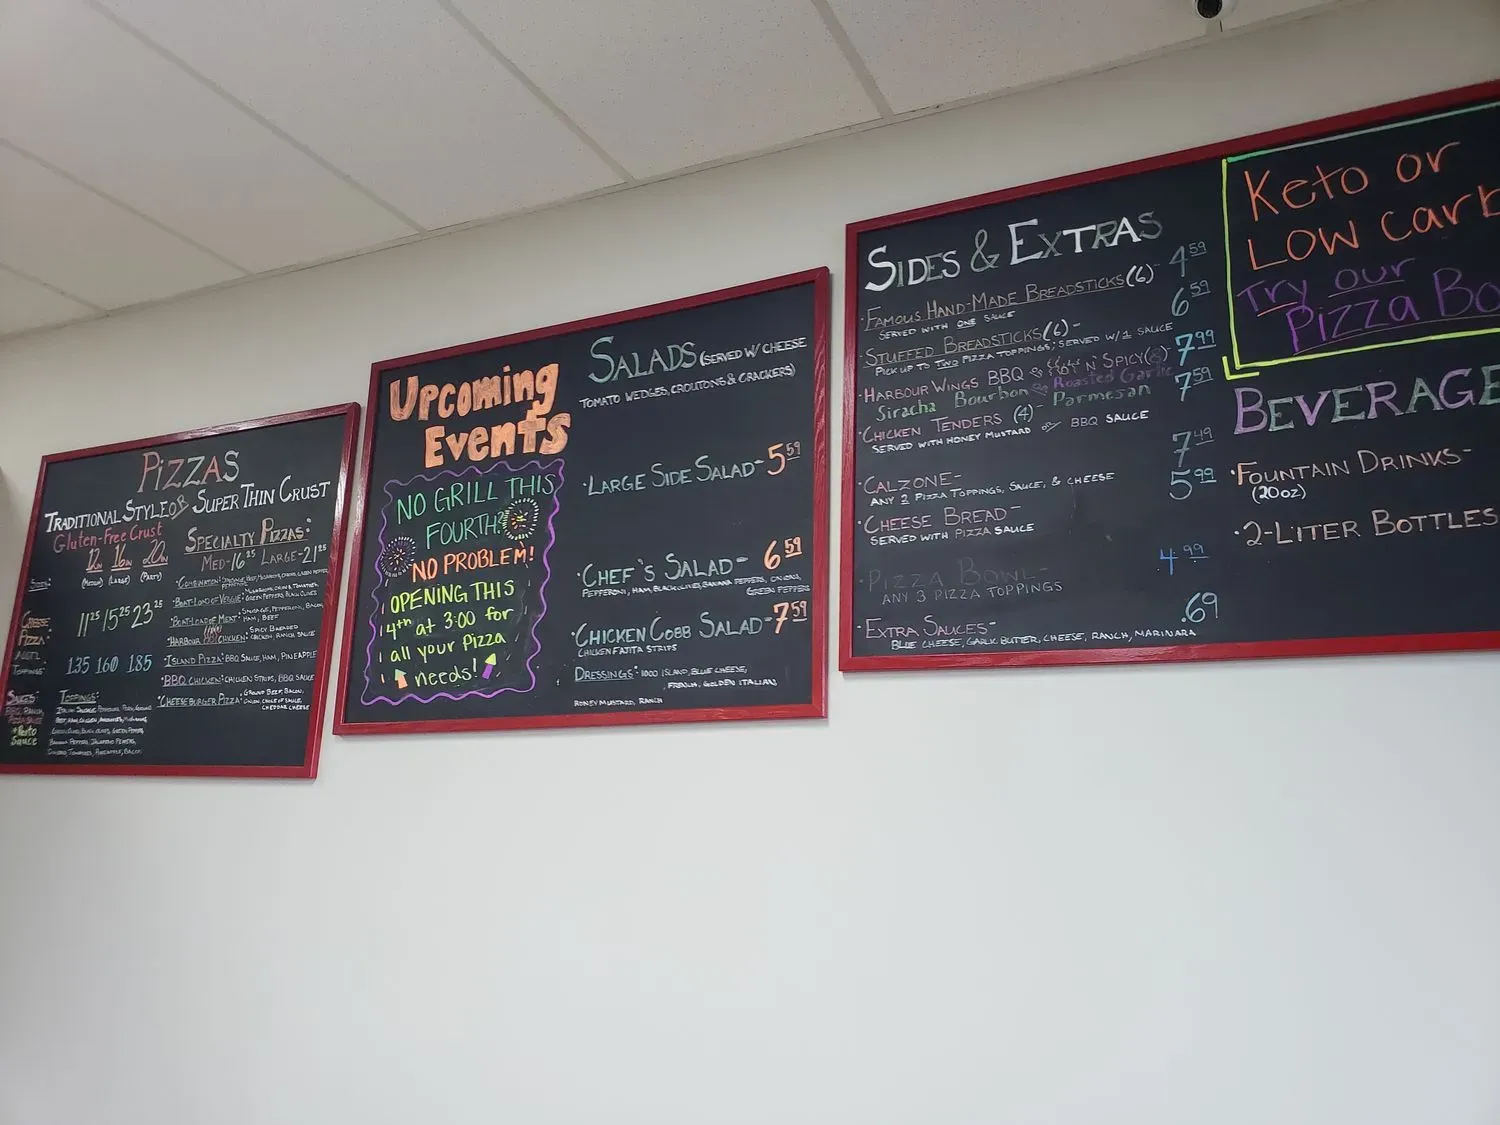 PIZZAS
TRADITIONAL STYLE OR SUPER THIN CRUST
Gluten-Free Crust
12IN 16IN 20IN
(MEDIUM) (LARGE) (PARTY)
SIZES:
CHEESE PIZZA: 11.25 15.25 23.25
ADD'TL TOPPINGS: 1.35 1.60 1.85
SAUCES:
BBQ, RANCH,
PIZZA SAUCE
*Pesto
Sauce
TOPPINGS:
ITALIAN SAUSAGE, PEPPERONI, PORK, GROUND
BEEF, HAM, CHICKEN, ANCHOVIES, MUSHROOMS,
GREEN OLIVES, BLACK OLIVES, GREEN PEPPERS,
BANANA PEPPERS, JALAPENO PEPPERS,
ONIONS, TOMATOES, PINEAPPLE, BACON
SPECIALTY PIZZAS:
MED-16.25 LARGE-21.25
•COMBINATION:
•BOAT-LOAD OF VEGGIE: MUSHROOMS, ONIONS, TOMATOES,
GREEN PEPPERS, BLACK OLIVES
•BOAT-LOAD OF MEAT: SAUSAGE, PEPPERONI, BACON,
HAM, BEEF
•HARBOUR HOT CHICKEN: SPICY BREADED
CHICKEN, RANCH SAUCE
•ISLAND PIZZA: BBQ SAUCE, HAM, PINEAPPLE
•BBQ CHICKEN: CHICKEN STRIPS, BBQ SAUCE
•CHEESEBURGER PIZZA: GROUND BEEF, BACON,
ONION, CHOICE OF SAUCE,
CHEDDAR CHEESE
Upcoming
Events
NO GRILL THIS
FOURTH?
NO PROBLEM!
OPENING THIS
4th at 3:00 for
all your pizza
needs!
SALADS (SERVED W/ CHEESE
TOMATO WEDGES, CROUTONS & CRACKERS)
•LARGE SIDE SALAD- 5.59
•CHEF'S SALAD- 6.59
PEPPERONI, HAM, BLACK OLIVES, BANANA PEPPERS, ONIONS,
GREEN PEPPERS
•CHICKEN COBB SALAD- 7.59
CHICKEN FAJITA STRIPS
DRESSINGS: 1000 ISLAND, BLUE CHEESE,
FRENCH, GOLDEN ITALIAN,
HONEY MUSTARD, RANCH
SIDES & EXTRAS
•FAMOUS HAND-MADE BREADSTICKS (6)- 4.59
SERVED WITH ONE SAUCE
•STUFFED BREADSTICKS (6)- 6.59
PICK UP TO TWO PIZZA TOPPINGS; SERVED W/1 SAUCE
•HARBOUR WINGS BBQ OR HOT 'N SPICY(8)- 7.99
Siracha Bourbon Roasted Garlic
Parmesan
•CHICKEN TENDERS (4)- 7.59
SERVED WITH HONEY MUSTARD OR BBQ SAUCE
•CALZONE- 7.49
ANY 2 PIZZA TOPPINGS, SAUCE, & CHEESE
•CHEESE BREAD- 5.99
SERVED WITH PIZZA SAUCE
•PIZZA BOWL- 4.99
ANY 3 PIZZA TOPPINGS
•EXTRA SAUCES- .69
BLUE CHEESE, GARLIC BUTTER, CHEESE, RANCH, MARINARA
Keto or
Low carb
Try our
Pizza Bo
BEVERAGE
•FOUNTAIN DRINKS-
(20oz)
•2-LITER BOTTLES